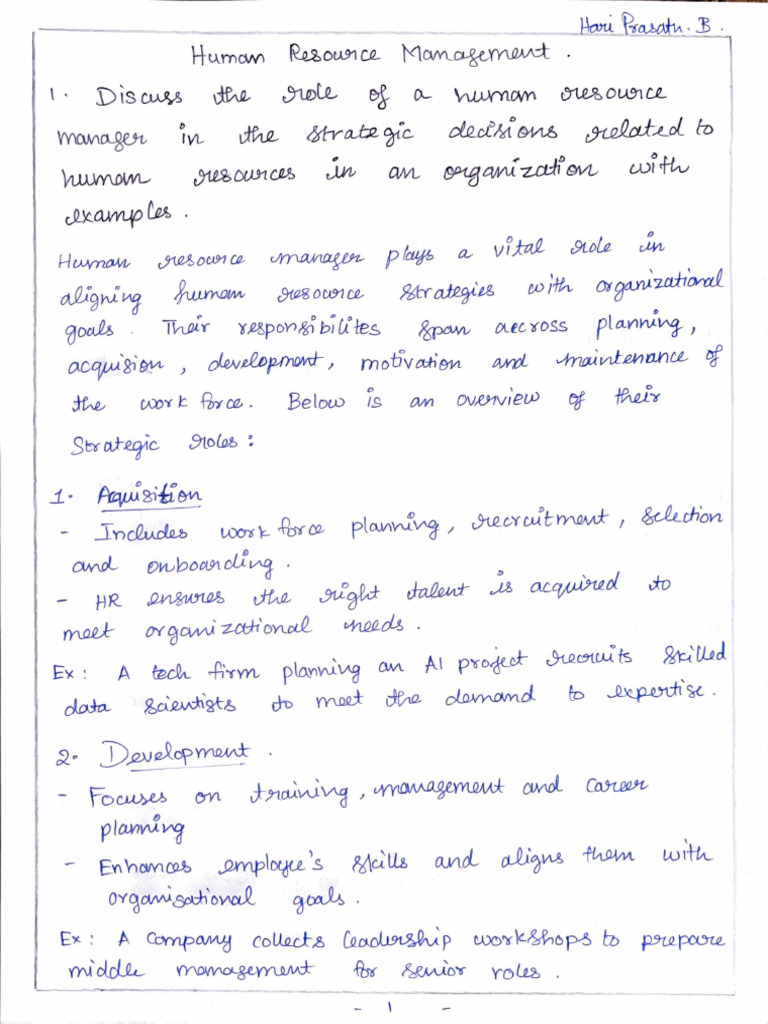 Hari Prasath. B.
Human Resource Management.
1. Discuss the role of a human resource
manager in the strategic decisions related to
human resources in an organization with
examples.
Human resource manager plays a vital role in
aligning human resource strategies with organizational
goals. Their responsibilites span aecross planning,
acquision, development, motivation and maintenance of
the work force. Below is an overview of their
Strategic roles:
1. Aquisition
- Includes work force planning, recruitment, selection
and onboarding.
- HR ensures the right talent is acquired to
meet organizational needs.
Ex: A tech firm planning an AI project recruits skilled
data scientists to meet the demand to expertise.
2. Development.
- Focuses on training, management and career
planning
- Enhances employee's skills and aligns them with
organisational goals.
Ex: A company collects leadership workshops to prepare
middle management for senior roles.
- 1 -